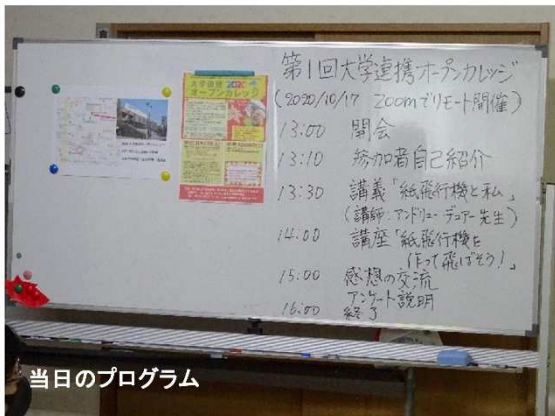 第1回大学連携オープンカレッジ
(2020/10/17 Zoomでリモート開催)
13:00 開会
13:10 参加者自己紹介
13:30 講義「紙飛行機と私」
(講師:アンドリュー・デュアー先生)
14:00 講座「紙飛行機を
作って飛ばそう!」
15:00 感想の交流
アンケート説明
16:00 終了
大学連携 2020
オープンカレッジ
当日のプログラム